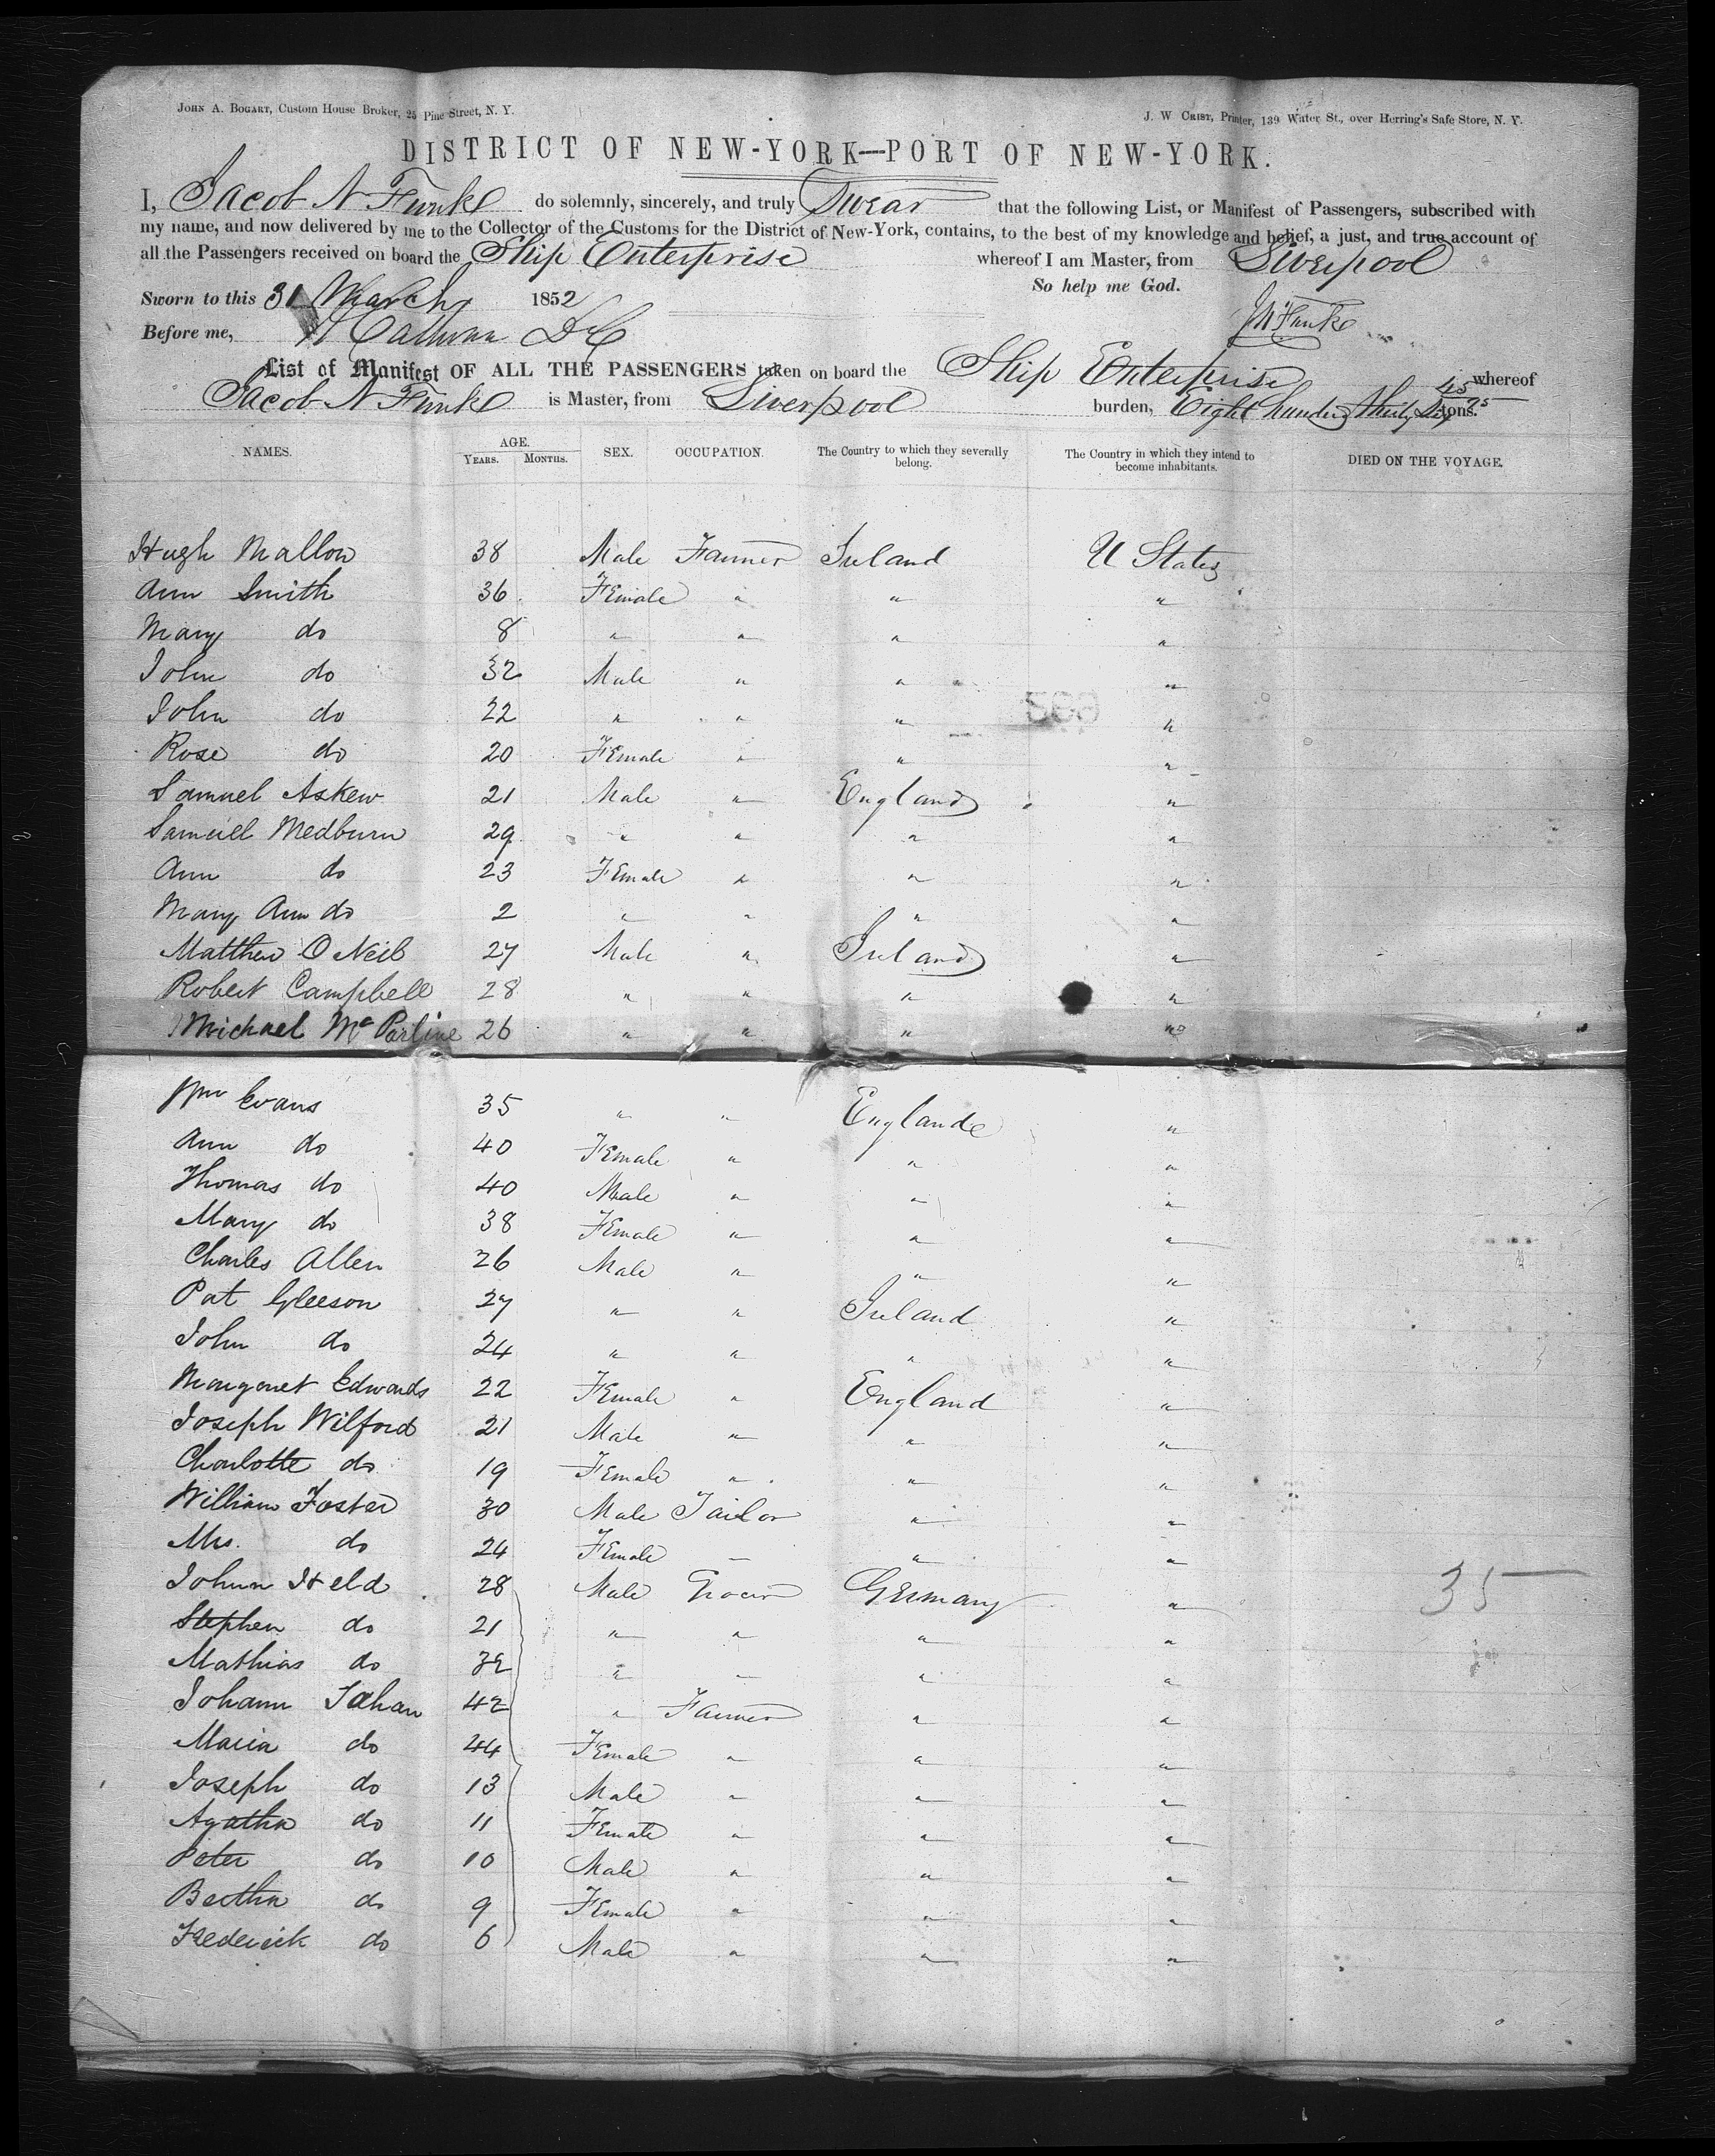 JOHN A. BOGART, Custom House Broker, 25 Pine Street, N. Y.
J. W CRIST, Printer, 139 Water St., over Herring's Safe Store, N. Y.
DISTRICT OF NEW-YORK—PORT OF NEW-YORK.
I, Jacob N Funk do solemnly, sincerely, and truly Swear that the following List, or Manifest of Passengers, subscribed with
my name, and now delivered by me to the Collector of the Customs for the District of New-York, contains, to the best of my knowledge and belief, a just, and true account of
all the Passengers received on board the Ship Enterprise whereof I am Master, from Liverpool
So help me God.
Sworn to this 31 March 1852
J N Funk
Before me,
List of Manifest OF ALL THE PASSENGERS taken on board the Ship Enterprise whereof
Jacob N Funk is Master, from Liverpool burden, Eight hundred thirty Six 45/95 tons.
NAMES. AGE. YEARS. MONTHS. SEX. OCCUPATION. The Country to which they severally belong. The Country in which they intend to become inhabitants. DIED ON THE VOYAGE.
Hugh Mallon 38 Male Farmer Ireland U States
Ann Smith 36 Female " " "
Mary do 8 " " " "
John do 32 Male " " "
John do 22 " " " "
Rose do 20 Female " " "
Samuel Askew 21 Male " England "
Samuel Medburn 29 " " " "
Ann do 23 Female " " "
Mary Ann do 2 " " " "
Matthew O Neil 27 Male " Ireland "
Robert Campbell 28 " " " "
Michael Mc Partine 26 " " " "
Wm Evans 35 " " England "
Ann do 40 Female " " "
Thomas do 40 Male " " "
Mary do 38 Female " " "
Charles Allen 26 Male " " "
Pat Gleeson 27 " " Ireland "
John do 24 " " " "
Margaret Edwards 22 Female " England "
Joseph Wilford 21 Male " " "
Charlotte do 19 Female " " "
William Foster 30 Male Tailor " "
Mrs. do 24 Female " " "
Johann Held 28 Male Grocer Germany " 35
Stephen do 21 " " " "
Mathias do 32 " " " "
Johann Jahan 42 " Farmer " "
Maria do 44 Female " " "
Joseph do 13 Male " " "
Agatha do 11 Female " " "
Peter do 10 Male " " "
Bertha do 9 Female " " "
Frederick do 6 Male " " "